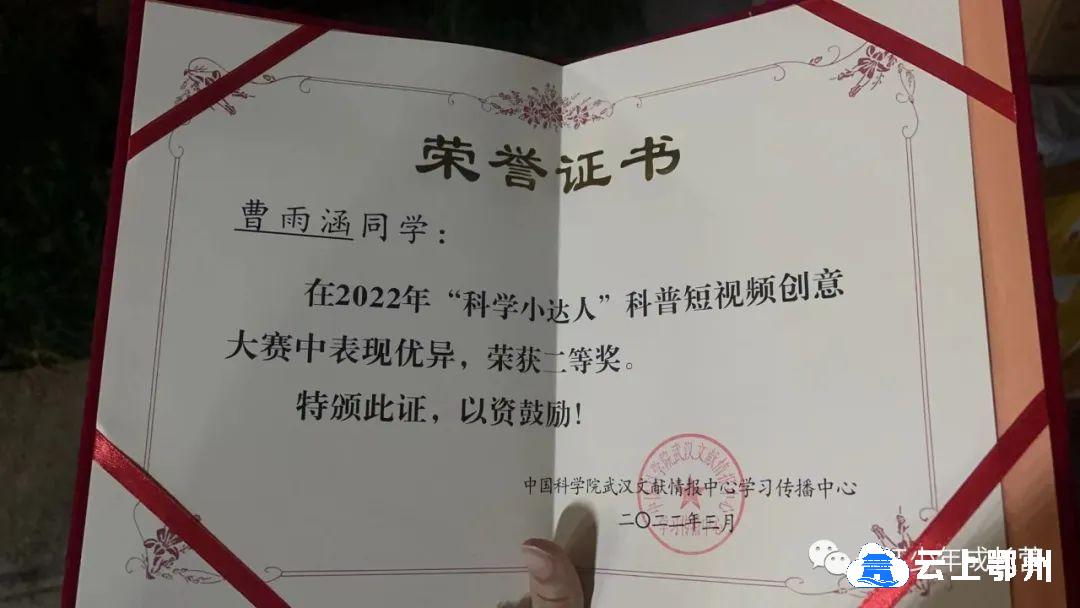 荣誉证书
曹雨涵同学：
在2022年“科学小达人”科普短视频创意
大赛中表现优异，荣获二等奖。
特颁此证，以资鼓励！
中国科学院武汉文献情报中心学习传播中心
二〇二二年三月
云上鄂州